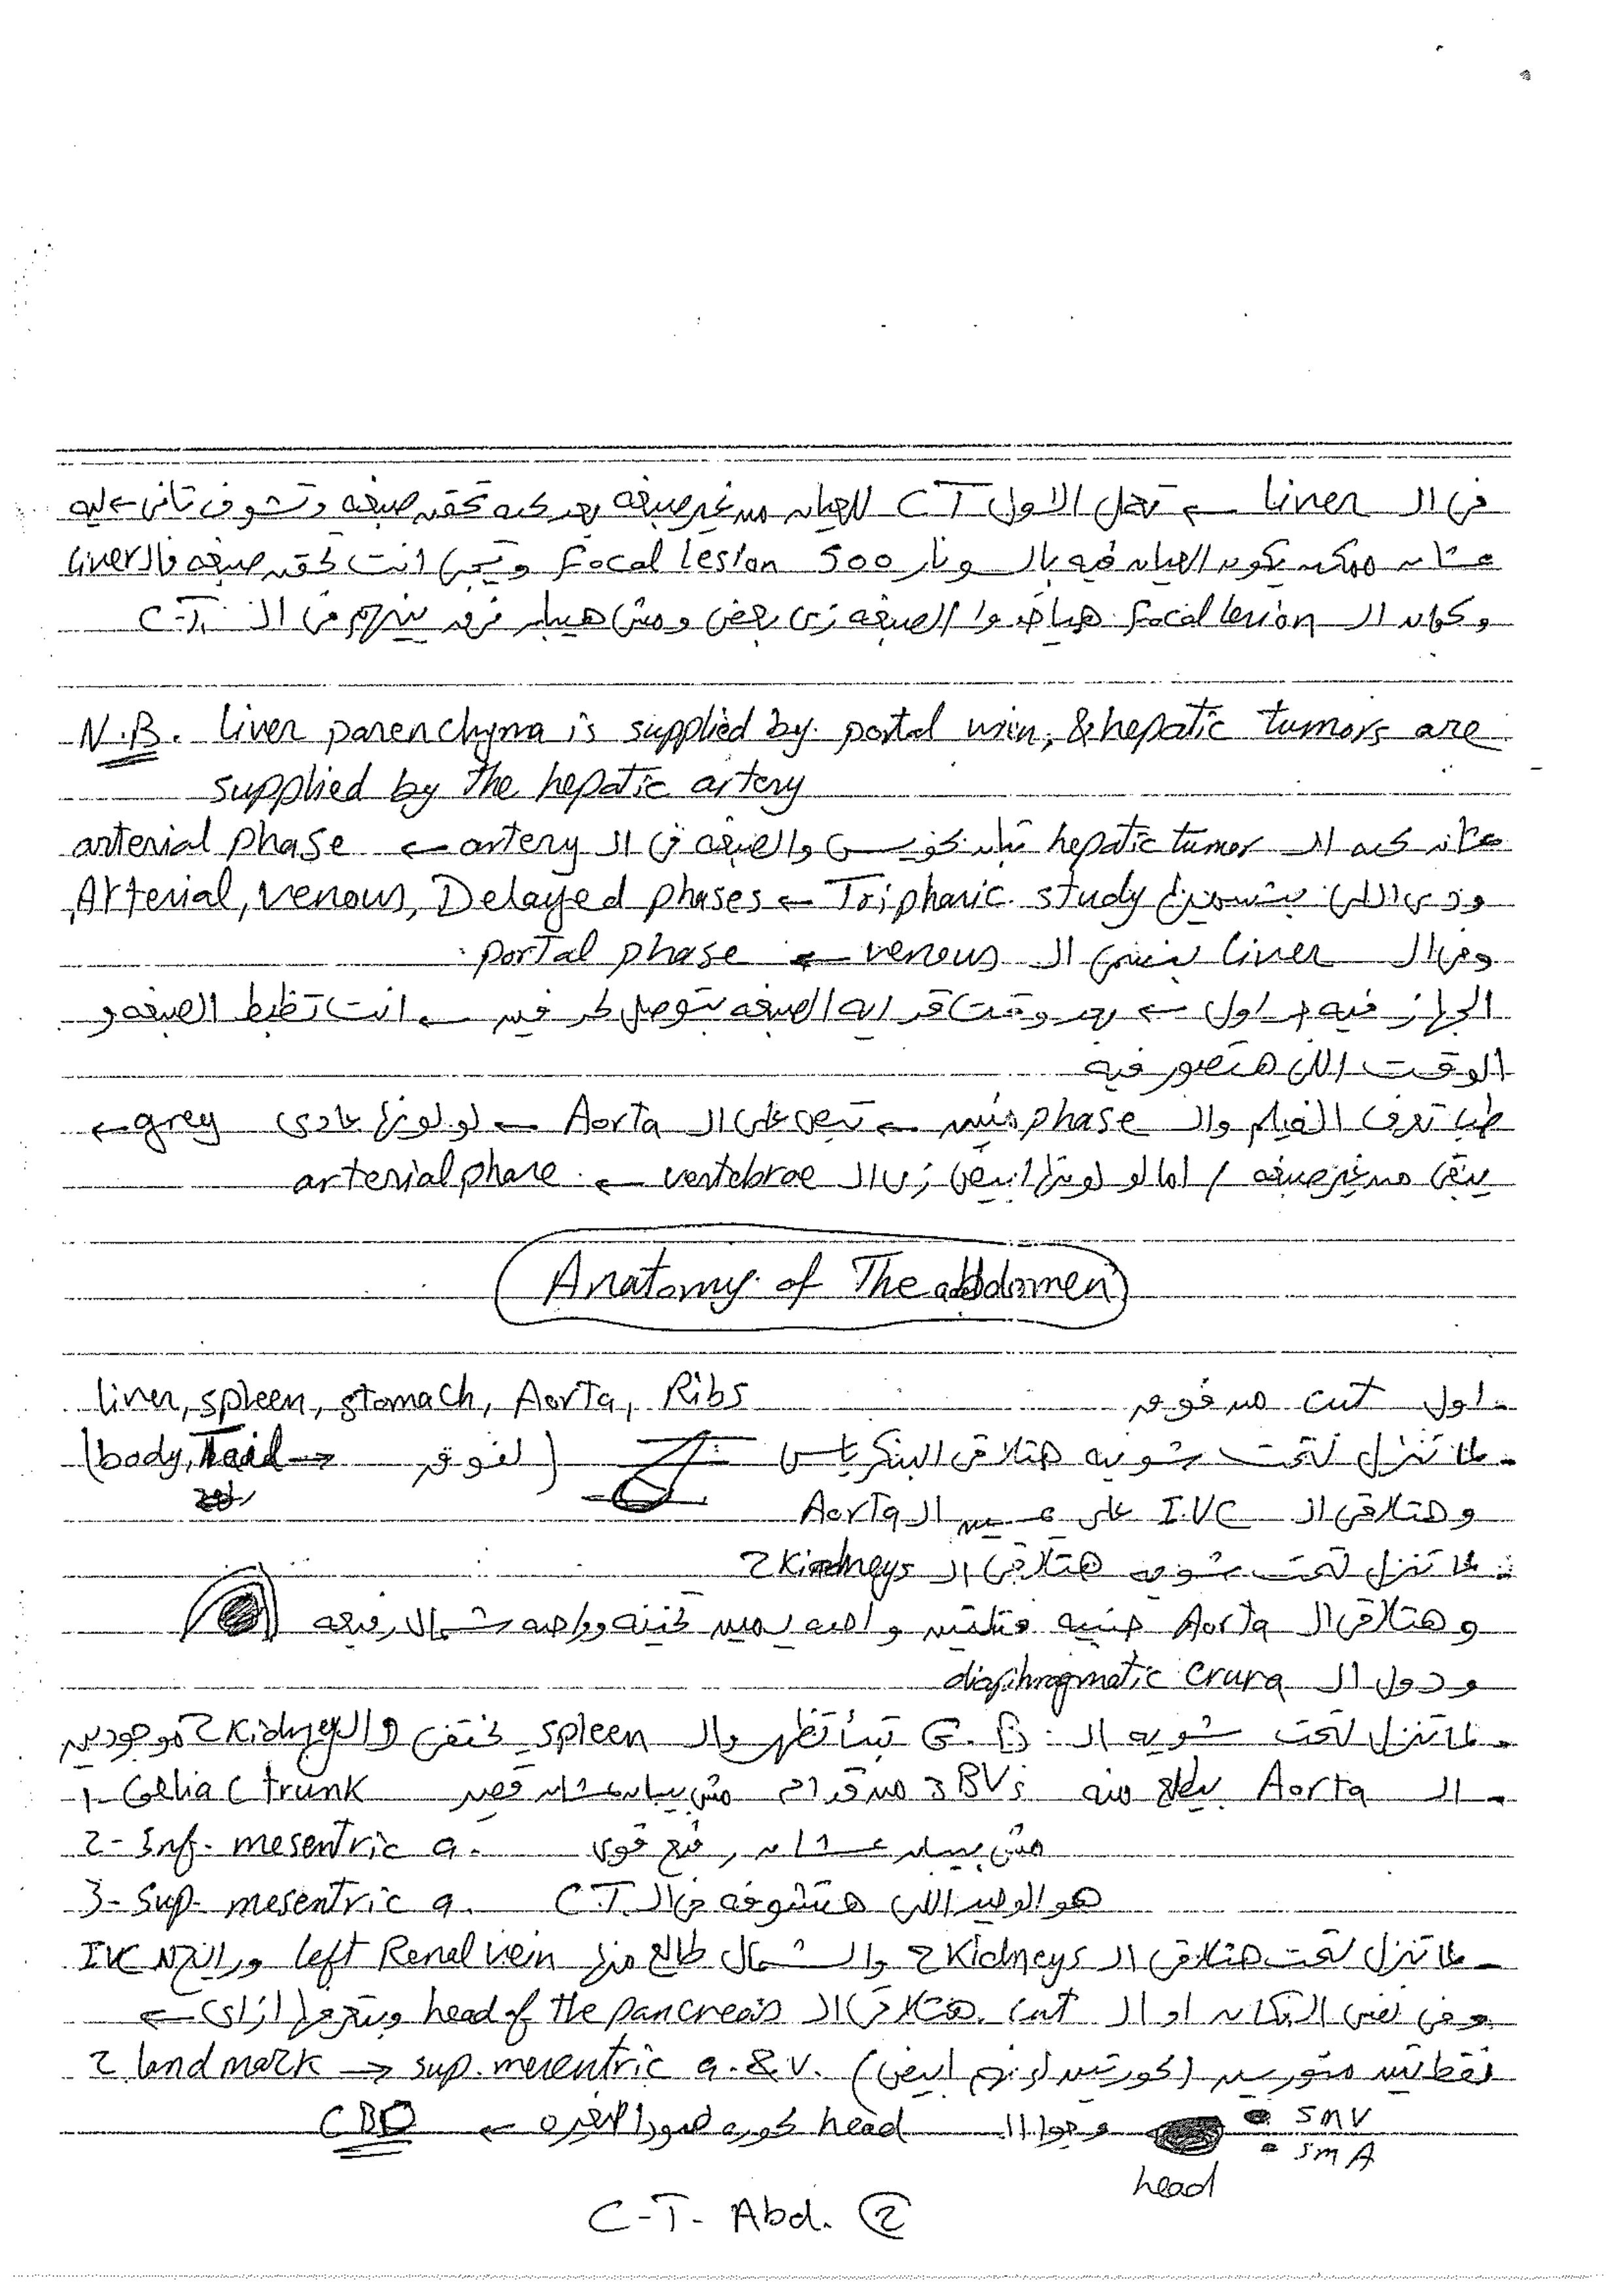 فى ال liver ← تعمل الاول CT للعيان من غير صبغه بعد كده تحقنه صبغه وتشوف تانى ← ليه
عشان ممكن يكون العيان فيه بال focal lesion 500 وتيجى انت تحقنه صبغه فال liver
وكمان ال focal lesion هياخدوا الصبغه زى بعض ومش هيبان فرق بينهم فى ال C.T.
N.B. liver parenchyma is supplied by portal vein, & hepatic tumors are
supplied by the hepatic artery
عشان كده ال hepatic tumor تبان كويس والصبغه فى ال artery ← arterial phase
ودى اللى بنسميها Triphasic study ← Arterial, venous, Delayed phases
وفى ال liver بنسمى ال venous ← portal phase
الجهاز فيه جداول ← بعد وقت قد ايه الصبغه بتوصل لحد فين ← انت تظبط الصبغه و
الوقت اللى هتصور فيه
طب تعرف الفيلم وال phase منين ← تبص على ال Aorta ← لو لونها عادى grey ←
يبقى من غير صبغه / اما لو لونها ابيض زى ال vertebrae ← arterial phase
Anatomy of The abdomen
- اول cut من فوق liver, spleen, stomach, Aorta, Ribs
- لما تنزل تحت شويه هتلاقى البنكرياس (لفوق → body, Tail)
وهتلاقى ال I.V.C على يمين ال Aorta
- لما تنزل تحت شويه هتلاقى ال 2 Kidneys
وهتلاقى ال Aorta جنبيه فتلتين واحده يمين تخينه وواحده شمال رفيعه
ودول ال diaphragmatic crura
- لما تنزل تحت شويه ال G.B تبدأ تظهر وال spleen يختفى وال 2 Kidney موجودين
- ال Aorta بيطلع منه 3 BVs من قدام 1- Celiac trunk مش بيبان عشان قصير
2- Inf. mesentric a. مش بيبان عشان رفيع قوى
3- Sup. mesentric a. هو الوحيد اللى هتشوفه فى ال C.T.
- لما تنزل تحت هتلاقى ال 2 Kidneys والشمال طالع منها left Renal vein ورايح لل IVC
وفى نفس المكان او ال cut هتلاقى ال head of the pancreas وبتعرفها ازاى ←
2 land mark → sup. mesentric a. & v. (نقطتين منورين (كورتين لونهم ابيض
SMV
SMA
head
وجوا ال head كوره سودا صغيره ← CBD
C-T- Abd. 2